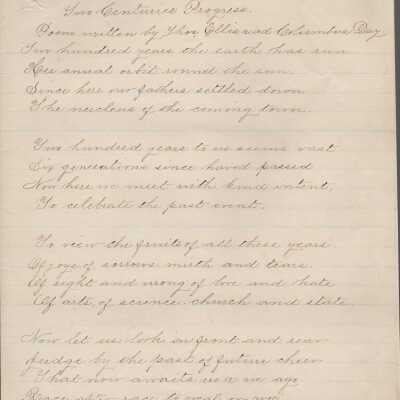 Two Centuries Progress.
Poem written by Thos. Ellis read Columbus Day
Two hundred years the earth has run
Her annual orbit round the sun
Since here our fathers settled down
The neucleus of the coming town.
Two hundred years to us seems vast
Six generations since haved passed
Now here we meet with kind intent,
To celebrate the past event.
To view the fruits of all these years
Of joys of sorrows mirth and tears.
Of right and wrong of love and hate
Of arts, of science, church and state.
Now let us look in front and rear
Judge by the past of future cheer
That now awaits us in an age